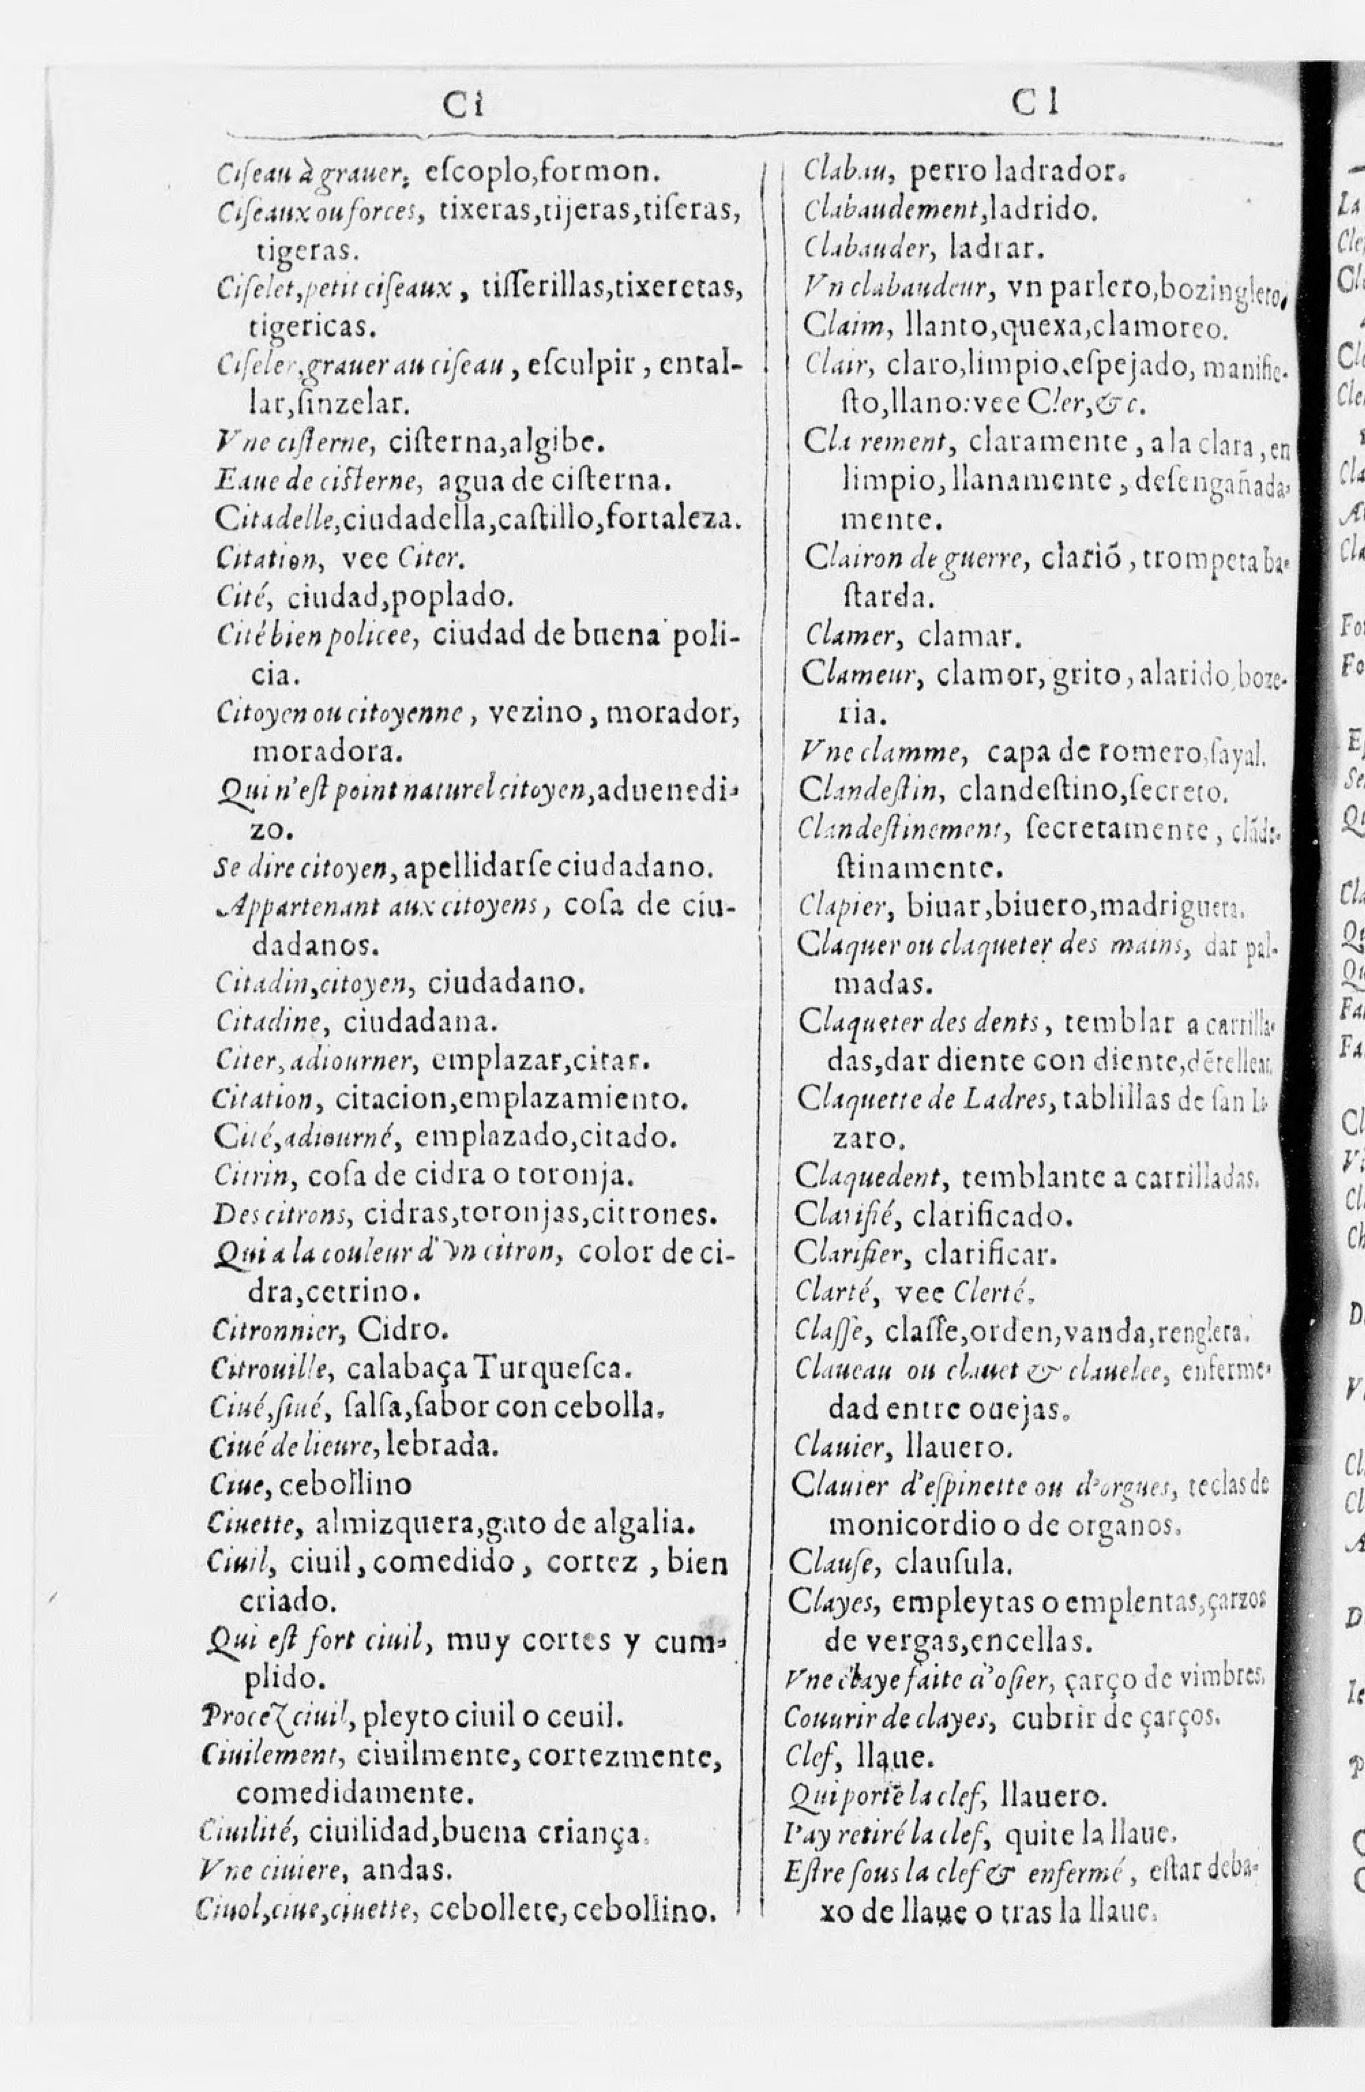 Ci
Ciſeau à grauer, eſcoplo,formon.
Ciſeaux ou forces, tixeras,tijeras,tiſeras,
tigeras.
Ciſelet,petit ciſeaux, tiſſerillas,tixeretas,
tigericas.
Ciſeler,grauer au ciſeau, eſculpir, ental-
lar,ſinzelar.
Vne ciſterne, ciſterna,algibe.
Eaue de ciſterne, agua de ciſterna.
Citadelle,ciudadella,caſtillo,fortaleza.
Citation, vee Citer.
Cité, ciudad,poplado.
Cité bien policee, ciudad de buena poli-
cia.
Citoyen ou citoyenne, vezino, morador,
moradora.
Qui n'eſt point naturel citoyen,aduenedi-
zo.
Se dire citoyen, apellidarſe ciudadano.
Appartenant aux citoyens, coſa de ciu-
dadanos.
Citadin,citoyen, ciudadano.
Citadine, ciudadana.
Citer,adiourner, emplazar,citar.
Citation, citacion,emplazamiento.
Cité,adiourné, emplazado,citado.
Citrin, coſa de cidra o toronja.
Des citrons, cidras,toronjas,citrones.
Qui a la couleur d'vn citron, color de ci-
dra,cetrino.
Citronnier, Cidro.
Citrouille, calabaça Turqueſca.
Ciué,ſiué, ſalſa,ſabor con cebolla.
Ciué de lieure, lebrada.
Ciue, cebollino
Ciuette, almizquera,gato de algalia.
Ciuil, ciuil, comedido, cortez, bien
criado.
Qui eſt fort ciuil, muy cortes y cum-
plido.
Procez ciuil, pleyto ciuil o ceuil.
Ciuilement, ciuilmente, cortezmente,
comedidamente.
Ciuilité, ciuilidad,buena criança.
Vne ciuiere, andas.
Ciuol,ciue,ciuette, cebollete, cebollino.
Cl
Clabau, perro ladrador.
Clabaudement,ladrido.
Clabauder, ladrar.
Vn clabaudeur, vn parlero,bozinglero.
Claim, llanto,quexa,clamoreo.
Clair, claro,limpio,eſpejado, manifie-
ſto,llano: vee Cler,&c.
Clairement, claramente, a la clara, en
limpio, llanamente, deſengañada-
mente.
Clairon de guerre, clariõ, trompeta ba-
ſtarda.
Clamer, clamar.
Clameur, clamor, grito, alarido,boze-
ria.
Vne clamme, capa de romero,ſayal.
Clandeſtin, clandeſtino,ſecreto.
Clandeſtinement, ſecretamente, clãde-
ſtinamente.
Clapier, biuar,biuero,madriguera.
Claquer ou claqueter des mains, dar pal-
madas.
Claqueter des dents, temblar a carrilla-
das,dar diente con diente,dẽtellear.
Claquette de Ladres, tablillas de ſan La
zaro.
Claquedent, temblante a carrilladas.
Clarifié, clarificado.
Clarifier, clarificar.
Clarté, vee Clerté.
Claſſe, claſſe,orden,vanda,renglera.
Claueau ou clauet & clauelee, enferme-
dad entre ouejas.
Clauier, llauero.
Clauier d'eſpinette ou d'orgues, teclas de
monicordio o de organos.
Clauſe, clauſula.
Clayes, empleytas o emplentas,çarzos
de vergas,encellas.
Vne claye faite d'oſier, çarço de vimbres.
Couurir de clayes, cubrir de çarços.
Clef, llaue.
Qui porte la clef, llauero.
I'ay retiré la clef, quite la llaue.
Eſtre ſous la clef & enfermé, eſtar deba-
xo de llaue o tras la llaue.